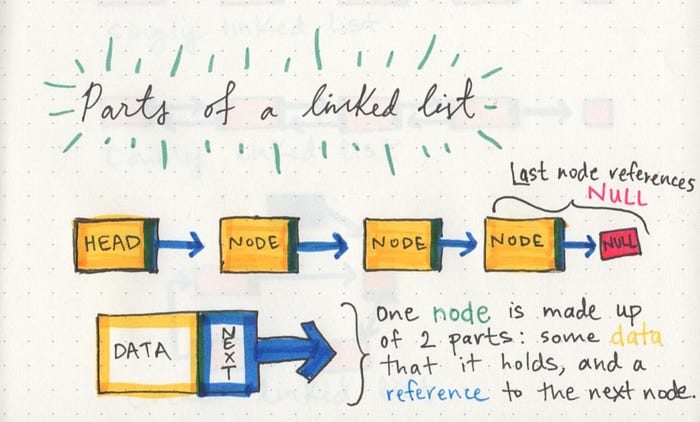 Singly linked list
Parts of a linked list
Doubly linked list
Last node references
NULL
HEAD
NODE
NODE
NODE
NULL
DATA
NEXT
One node is made up
of 2 parts: some data
that it holds, and a
reference to the next node.